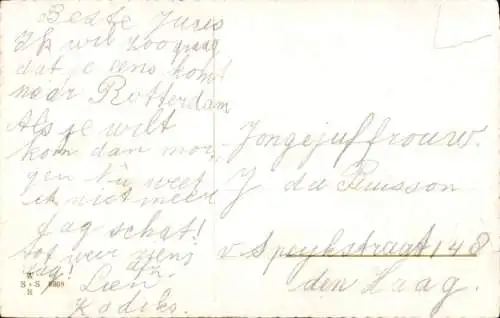 Beste Juus
Ik wil zoo graag
dat je eens komt
naar Rotterdam
Als je wilt
kom dan mor,
gen Nu weet
ik niet meer
dag schat!
tot weer ziens
dag! afz.
Lien
Jongejuffrouw.
J du Buisson
v Speykstraat 148
den Haag.
W
S + S
B 6969